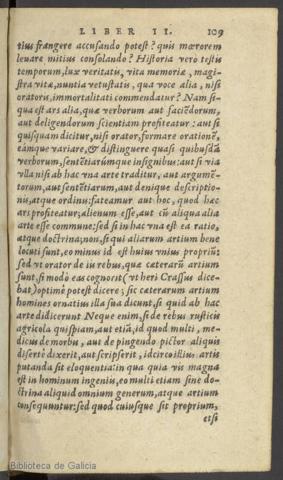 LIBER II. 109
tius frangere accusando potest? quis mœrorem
levare mitius consolando? Historia vero testis
temporum, lux veritatis, vita memoriæ, magi-
stra vitæ, nuntia vetustatis, qua voce alia, nisi
oratoris, immortalitati commendatur? Nam si-
qua est ars alia, quæ verborum aut faciēdorum,
aut deligendorum scientiam profiteatur: aut si
quisquam dicitur, nisi orator, formare orationē,
eāmque variare, & distinguere quasi quibusdā
verborum, sentētiarúmque insignibus: aut si via
vlla nisi ab hac vna arte traditur, aut argumē-
torum, aut sentētiarum, aut denique descriptio-
nis, atque ordinis: fateamur aut hoc, quod hæc
ars profiteatur, alienum esse, aut cū aliqua alia
arte esse commune: sed si in hac vna est ea ratio,
atque doctrina; non, si qui aliarum artium bene
locuti sunt, eo minus id est huius vnius propriū:
sed vt orator de iis rebus, quæ cæterarū artium
sunt, si modò eas cognorit (vt heri Crassus dice-
bat) optimè potest dicere; sic cæterarum artium
homines ornatius illa sua dicunt, si quid ab hac
arte didicerunt Neque enim, si de rebus rusticis
agricola quispiam, aut etiā, id quod multi, me-
dicus de morbis, aut de pingendo pictor aliquis
disertè dixerit, aut scripserit, idcirco illius artis
putanda sit eloquentia: in qua quia vis magna
est in hominum ingeniis, eo multi etiam sine do-
ctrina aliquid omnium generum, atque artium
consequuntur: sed quod cuiusque sit proprium,
etsi
Biblioteca de Galicia